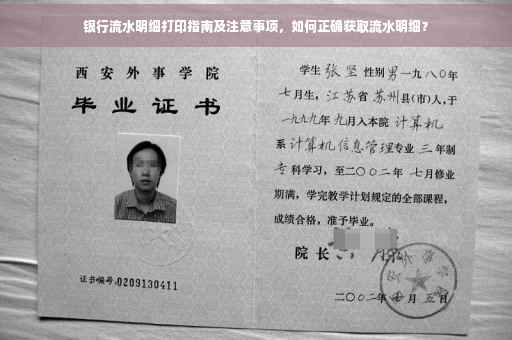 银行流水明细打印指南及注意事项，如何正确获取流水明细？
西安外事学院
毕业证书
证书编号:0209130411
学生 张坚 性别 男 一九八〇年
七月生，江苏省 苏州县(市)人,于
一九九九年 九月入本院 计算机
系 计算机信息管理专业 三 年制
专 科学习，至二〇〇二年 七月修业
期满，学完教学计划规定的全部课程，
成绩合格，准予毕业。
院长
二〇〇二年 月 五日